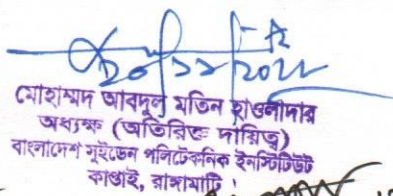 ২০/১১/২০১১
মোহাম্মদ আবদুল মতিন হাওলাদার
অধ্যক্ষ (অতিরিক্ত দায়িত্ব)
বাংলাদেশ সুইডেন পলিটেকনিক ইনস্টিটিউট
কাপ্তাই, রাঙ্গামাটি।